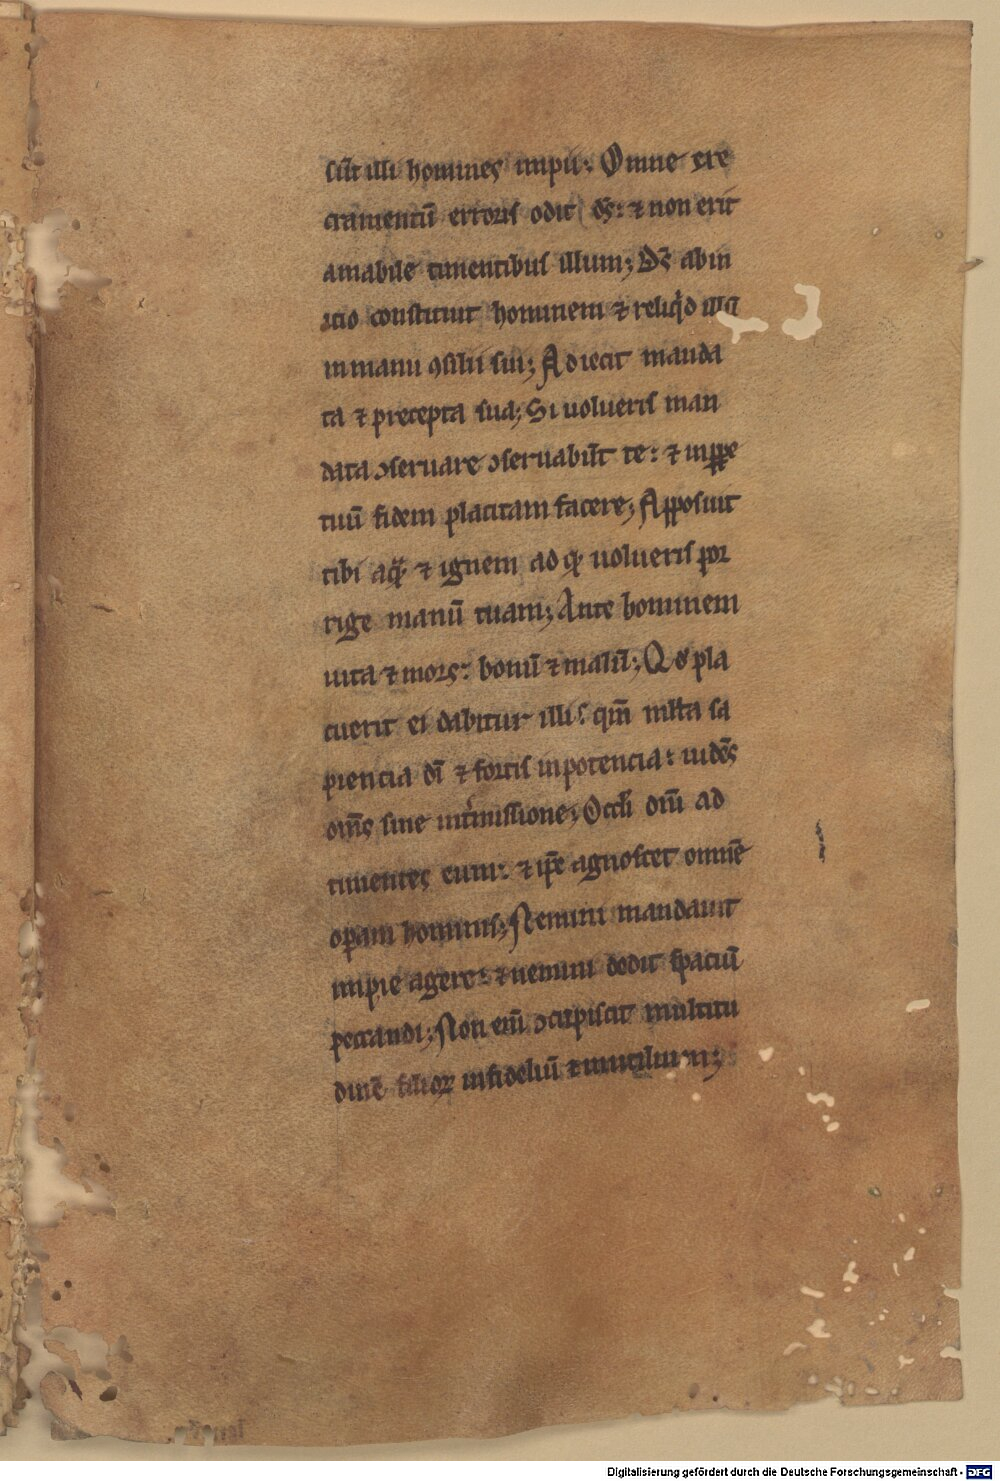 sūt illi homines impii: Omne exe
cramentū erroris odit ds̄: ⁊ non erit
amabile timentibus illum; Ds̄ abin
icio constituit hominem ⁊ reliq̇d illū
in manu ꝯsilii sui; Adiecit manda
ta ⁊ precepta sua; Si uolueris man
data ꝯseruare ꝯseruabūt te: ⁊ inꝑpe
tuū fidem placitam facere; Apposuit
tibi aquā ⁊ ignem ad qͩ uolueris por
rige manū tuam; Ante hominem
uita ⁊ mors: bonū ⁊ malū; Qͩ pla
cuerit ei dabitur illi: qm̄ ml̄ta sa
piencia dī ⁊ fortis inpotencia: uidēs
om̄s sine int̄missione; Occl̄i dn̄i ad
timentes eum: ⁊ ip̄e agnoscet omnē
oꝑam hominis; Nemini mandauit
impie agere: ⁊ nemini dedit spaciū
peccandi; Non enī ꝯcupiscit multitu
dinē filioꝝ infideliū ⁊ inutilium;
Digitalisierung gefördert durch die Deutsche Forschungsgemeinschaft - DFG